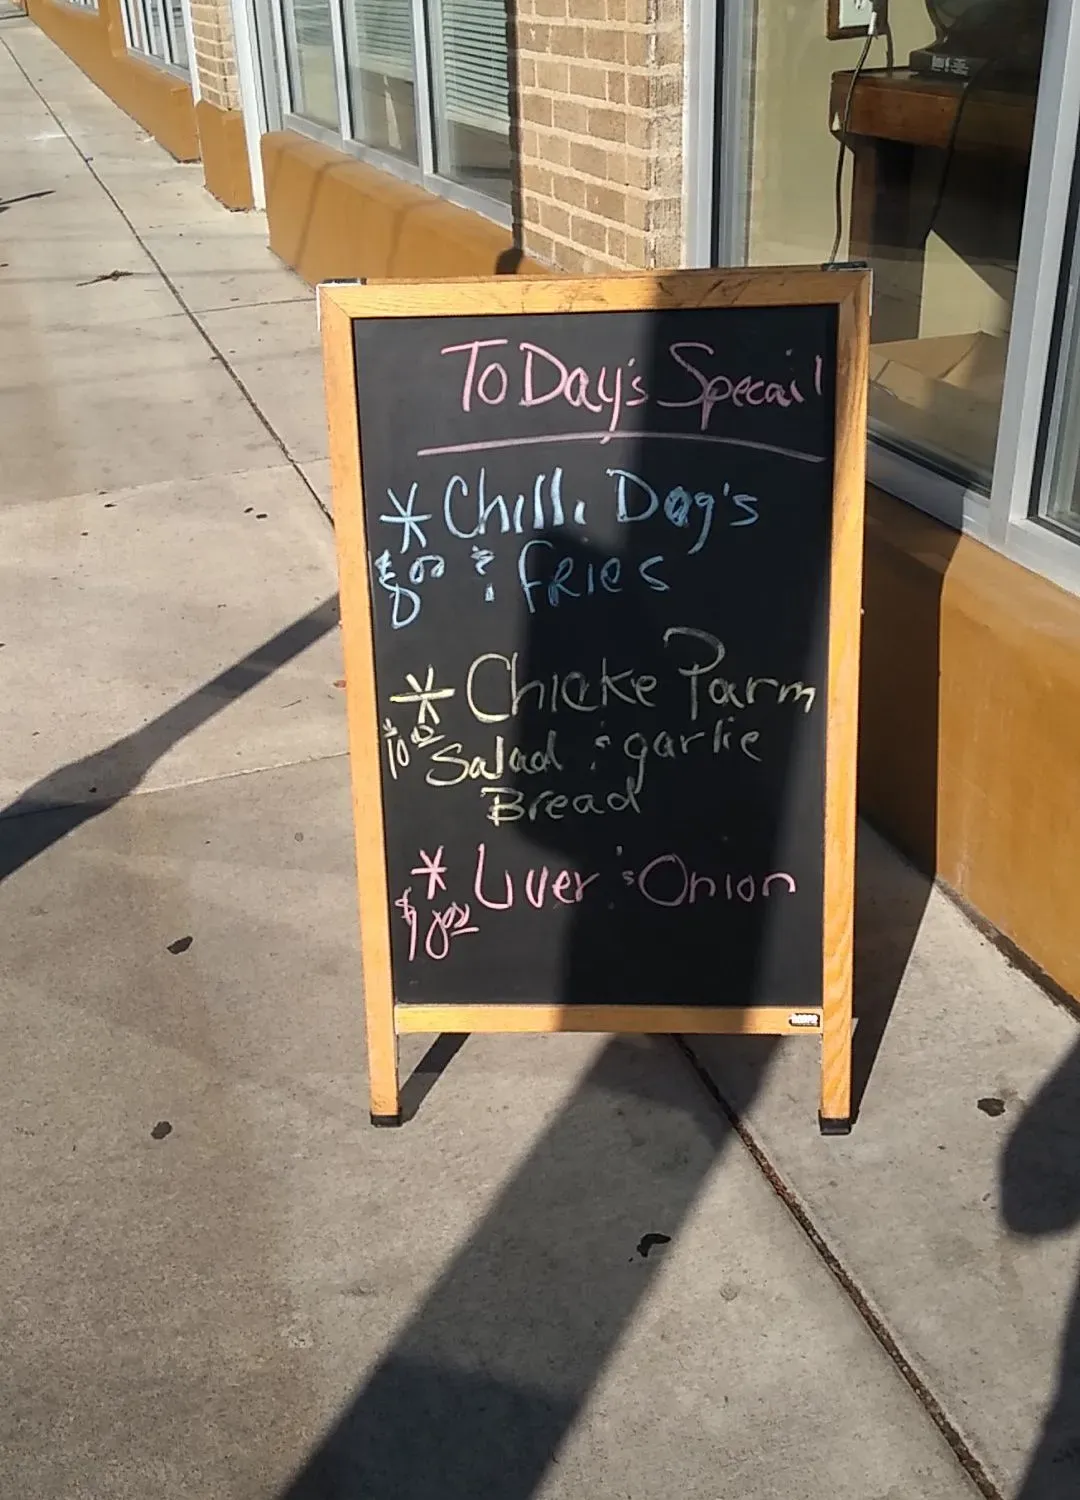 ToDay's Specail
* Chilli Dog's
$8.00 & fRies
* Chicke Parm
$10.00 Salad & garlic
Bread
* Liver & Onion
$10.00